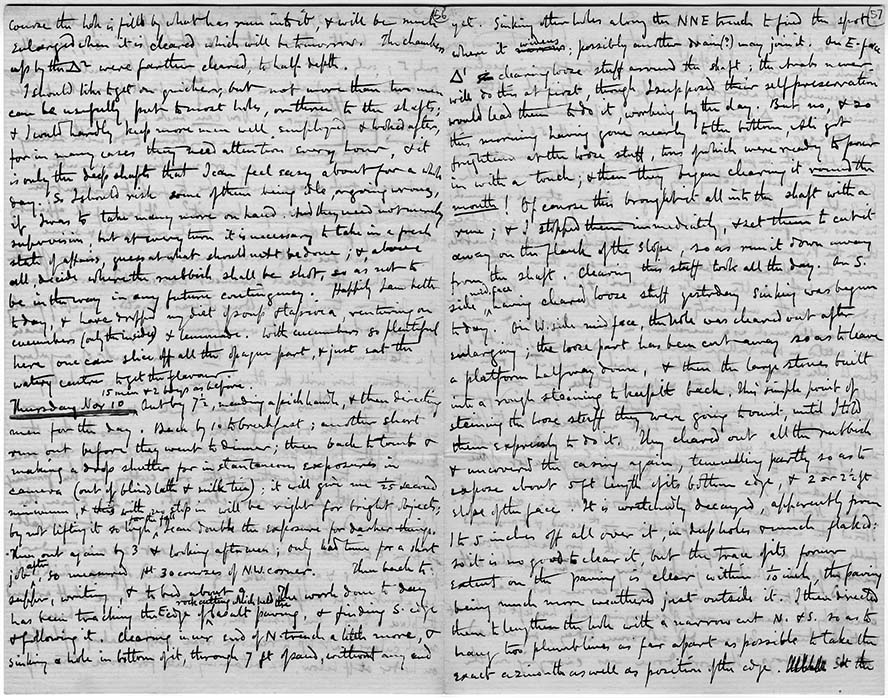 56
course the hole is filled by what has run into it, & will be much
enlarged when it is cleared which will be tomorrow. The chambers
up by the Δ² were farther cleared, to half depth.
I should like to get on quicker, but not more than two men
can be usefully put to most holes, or three to the shafts;
& I could hardly keep more men well employed & looked after,
for in many cases they need attention every hour, & it
is only the deep shafts that I can feel easy about for a whole
day. So I should risk some of them being idle or going wrong,
if I was to take many more on hand. And they need not merely
supervision; but at every turn it is necessary to take in a fresh
state of affairs, guess at what should next be done; & above
all decide where the rubbish shall be shot, so as not to
be in the way in any future contingency. Happily I am better
today, & have dropped my diet of soup & tapioca, venturing on
cucumbers (only the inside) & lemonade. With cucumbers so plentiful
here one can slice off all the opaque part, & just eat the
watery centre to get the flavour.
15 men & 2 boys as before.
Thursday Nov 10 Out by 7½, needing a pick handle, & then directing
men for the day. Back by 10 to breakfast; another short
run out before they went to dinner; then back to tomb &
making a drop shutter for instantaneous exposures in
camera (out of blind lath & milk tin) it will give me second
minimum, & this with stop in will be right for bright objects;
by not lifting it so high, I can double the exposure for darker things.
Then out again by 3 & looking after men; only had time for a short
job after, so measured 1st 30 courses of N.W. corner. Then back to
supper, writing, & to bed about 9. The work done to day
has been tracking the Edge of basalt paving, & finding S. edge
& following it. Clearing inner end of N trench a little more, &
sinking a hole in bottom of it, through 7 ft of sand, without any end
57
yet. Sinking other holes along the NNE trench to find the spot
where it widens; possibly another drain (?) may join it. On E. face
Δ¹ clearing loose stuff around the shaft; the Arabs never
will do this at first, though I supposed their self preservation
would lead them to do it, working by the day. But no, & so
this morning having gone nearly to the bottom, Ali got
frightened at the loose stuff, tons of which were ready to pour
in with a touch; & then they began clearing it round the
mouth! Of course this brought it all into the shaft with a
run; & I stopped them immediately, & set them to cut it
away on the flank of the slope, so as run it down away
from the shaft. Clearing this stuff took all the day. On S.
side mid face, having cleared loose stuff yesterday sinking was begun
today. On W. side mid face, the hole was cleared out after
enlarging; the loose part has been cut away so as to leave
a platform halfway down, & then the large stones built
into a rough steening to keep it back. This simple point of
steening the loose stuff they were going to omit until I told
them expressly to do it. They cleared out all the rubbish
& uncovered the casing again, tunnelling partly so as to
expose about 5 ft length of its bottom edge, & 2 or 2½ ft
slope of the face. It is wretchedly decayed, apparently from
1 to 5 inches off all over it, in deep holes & much flaked:
so it is no good to clear it, but the trace of its former
extent on the paving is clear within 1/10 inch, the paving
being much more weathered just outside it. I then directed
them to lengthen the hole with a narrow cut N. & S. so as to
hang two plumb lines as far apart as possible to take the
exact azimuth as well as position of the edge. At the